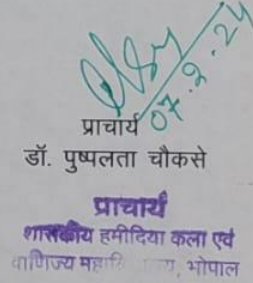 07.2.24
प्राचार्य
डॉ. पुष्पलता चौकसे
प्राचार्य
शासकीय हमीदिया कला एवं
वाणिज्य भोपाल